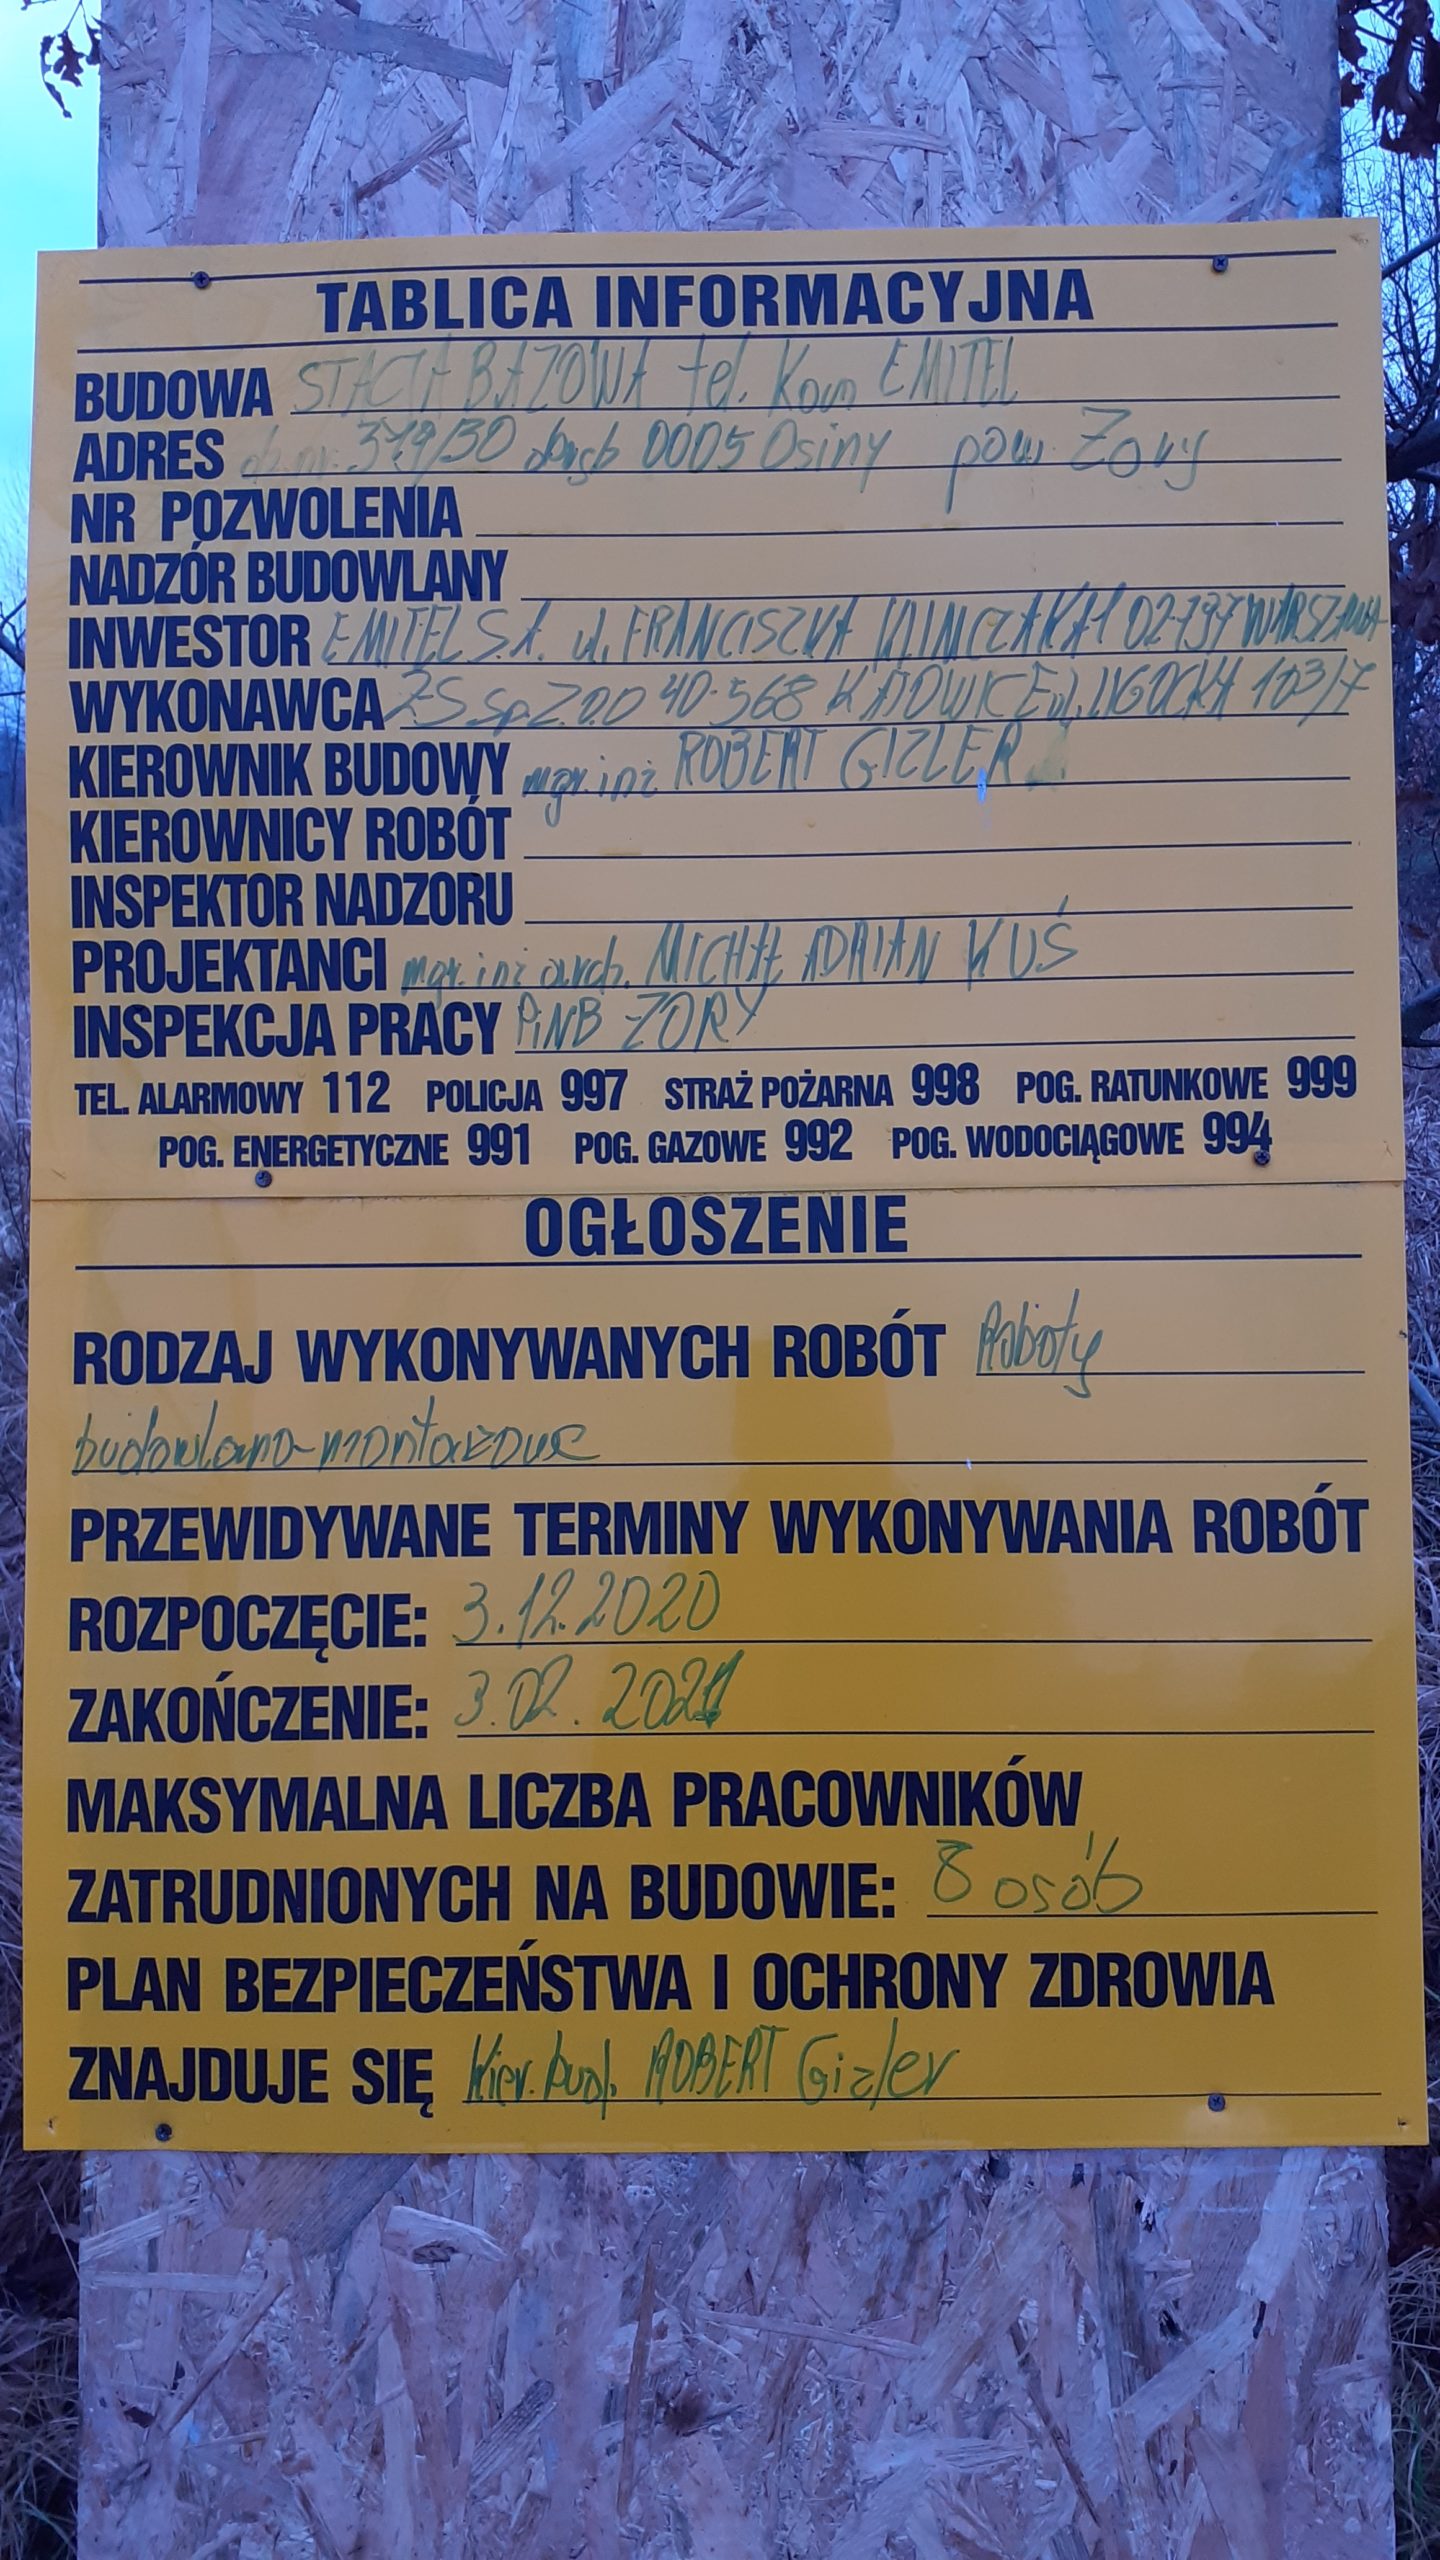 TABLICA INFORMACYJNA
BUDOWA STACJA BAZOWA tel. Kom EMITEL
ADRES dz.nr. 379/30 obręb 0005 Osiny pow. Żory
NR POZWOLENIA
NADZÓR BUDOWLANY
INWESTOR EMITEL S.A. ul. FRANCISZKA KLIMCZAKA 1 02-797 WARSZAWA
WYKONAWCA ZS Sp. Z.O.O 40-568 KATOWICE ul. LIGOCKA 103/7
KIEROWNIK BUDOWY mgr. inż ROBERT GIZLER
KIEROWNICY ROBÓT
INSPEKTOR NADZORU
PROJEKTANCI mgr. inż arch. MICHAŁ ADRIAN KUŚ
INSPEKCJA PRACY PINB ŻORY
TEL. ALARMOWY 112 POLICJA 997 STRAŻ POŻARNA 998 POG. RATUNKOWE 999
POG. ENERGETYCZNE 991 POG. GAZOWE 992 POG. WODOCIĄGOWE 994
OGŁOSZENIE
RODZAJ WYKONYWANYCH ROBÓT Roboty
budowlano-montażowe
PRZEWIDYWANE TERMINY WYKONYWANIA ROBÓT
ROZPOCZĘCIE: 3.12.2020
ZAKOŃCZENIE: 3.02.2021
MAKSYMALNA LICZBA PRACOWNIKÓW
ZATRUDNIONYCH NA BUDOWIE: 8 osób
PLAN BEZPIECZEŃSTWA I OCHRONY ZDROWIA
ZNAJDUJE SIĘ Kier. bud. ROBERT Gizler